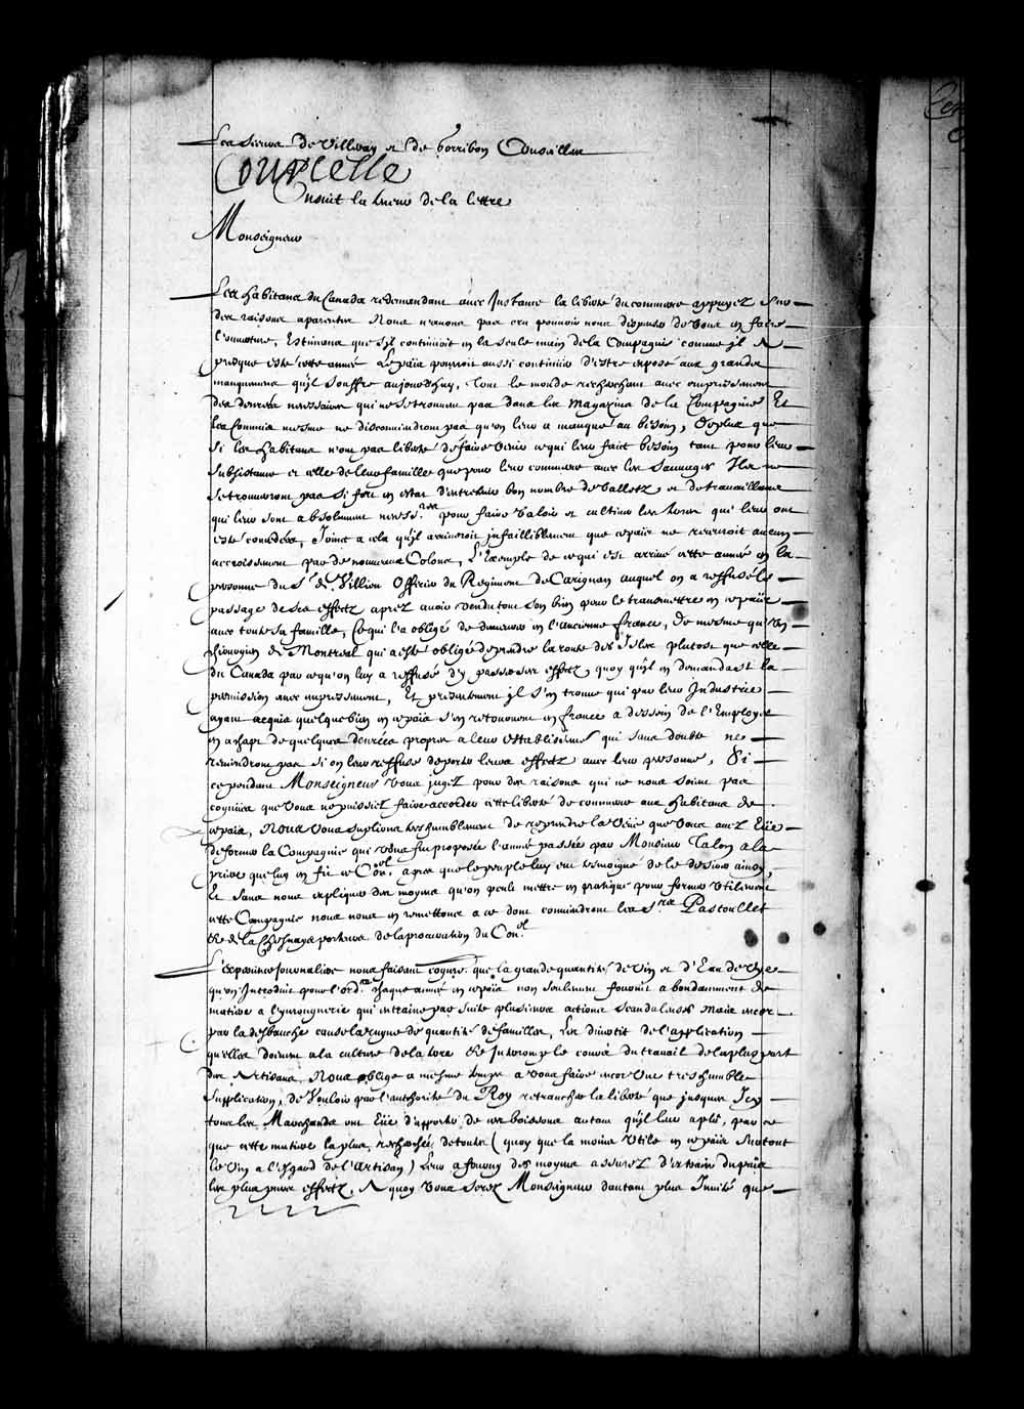 Les sieurs de Villeray et de Gorribon Conseillers
Courcelle
Ensuit la teneur de la lettre
Monseigneur
Les habitans du Canada redemandans avec Instance la liberté du commerce appuyez sur
des raisons aparentes Nous n'avons pas cru pouvoir nous dispenser de vous en faire
l'ouverture, Estimans que s'il continuoit en la seule main de la Compagnie comme il a
presque esté cette année Le païs pourroit aussi continuer d'estre exposé aux grandes
manquemens qu'il souffre aujourd'huy, Tout le monde recherchant avec empressement
des denrées necessaires qui ne se trouvent pas dans les magazins de la Compagnie Et
les Commis mesme ne disconviendront pas qu'on leur a manqué au besoin, Deplus que
si les habitans n'ont pas liberté de faire venir ce qui leur fait besoin tant pour leur
subsistance et celle de leur famille que pour leur commerce avec les sauvages Ils ne
se trouveront pas si fort en estat d'entretenir bon nombre de valletz et de travaillans
qui leur sont absolument necess.res pour faire valoir et cultiver les terres qui leur ont
esté concedées, Joint a cela qu'il arriveroit infailliblement que ce païs ne recevroit aucun
accroissement par de nouveaux Colons, L'Exemple de ce qui est arrivé cette année en la
personne du S.r de Villieu Officier du Regiment de Carignan auquel on a reffusé le
passage de ses effectz aprez avoir vendu tout son bien pour le transmettre en ce païs
avec toute sa famille, Ce qui l'a obligé de demeurer en l'ancienne france, De mesme qu'un
chirurgien de Montreal qui a esté obligé de prendre la route des Isles plutost que celle
du Canada par ce qu'on luy a reffusé d'y passer ses effectz, quoy qu'il en demandast la
permission avec empressement, Et presentement il s'en trouve qui par leur Industrie
ayant acquis quelque bien en ce païs s'en retournent en france a dessein de l'Employer
en achapt de quelques denrées propres a leur establissem.t qui sans doute ne
reviendront pas si on leur reffuse de porter leurs effectz avec leur personne, Si
cependant Monseigneur vous jugez pour des raisons qui ne nous soient pas
cognües que vous ne puissiez faire accorder cette liberté de commerce aux habitans de
ce païs, Nous vous suplions tres humblement de reprendre la veüe que vous avez Eüe
de former la Compagnie qui vous fut proposée l'année passée par Monsieur Talon a la
priere que luy en fit ce Con.el apres que le peuple luy eut tesmoigné de le desirer ainsy,
Et sans nous expliquer des moyens qu'on peut mettre en pratique pour former utilement
cette Compagnie nous nous en remettons a ce dont conviendront les S.rs Pastoullet
et de la Chesnaye porteurs de la procuration du Con.el
L'experience journaliere nous faisant cognre. que la grande quantité de vin et d'Eau de vie
qu'on Introduit pour l'ord.re chaque année en ce païs non seulement fournit abondamment de
matiere a l'yvrognerie qui entraine par suite plusieurs actions scandaleuses mais encor
par la desbauche cause la ruyne de quantité de familles, Les divertit de l'application
qu'elles doivent a la culture de la terre et Interompt le cours du travail de la plus part
des Artisans, Nous oblige a mesme temps a vous faire encor une tres humble
supplication, de Vouloir par l'authorité du Roy retrancher la liberté que jusques Icy
tous les Marchands ont Eüe d'apporter de ces boissons autant qu'il leur a plû, par ce
que cette matiere la plus recherchée de toutes (quoy que la moins utile en ce païs surtout
le vin a l'Esgard de l'Artisan) leur a fourny des moyens asseurez d'extraire du païs
les plus purs effectz, A quoy vous serez Monseigneur d'autant plus Invité que